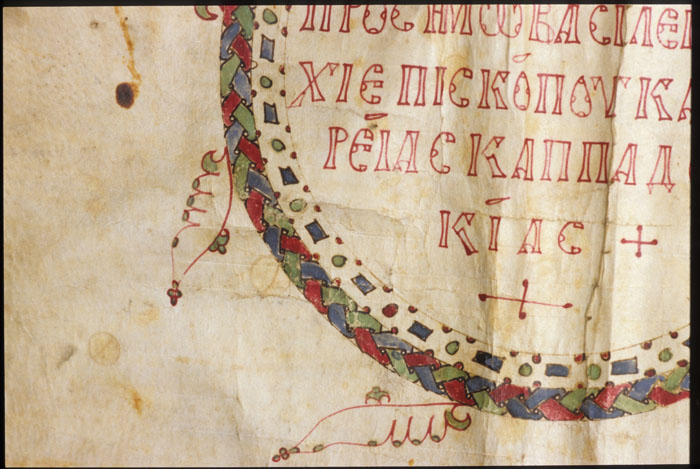 ΠΡΟϹΗΜѠΒΑϹΙΛΕΙ
ΧΙΕΠΙϹΚΌΠΟΥΚΑ
ΡΕΊΑϹΚΑΠΠΑΔ
ΚΊΑϹ +
+